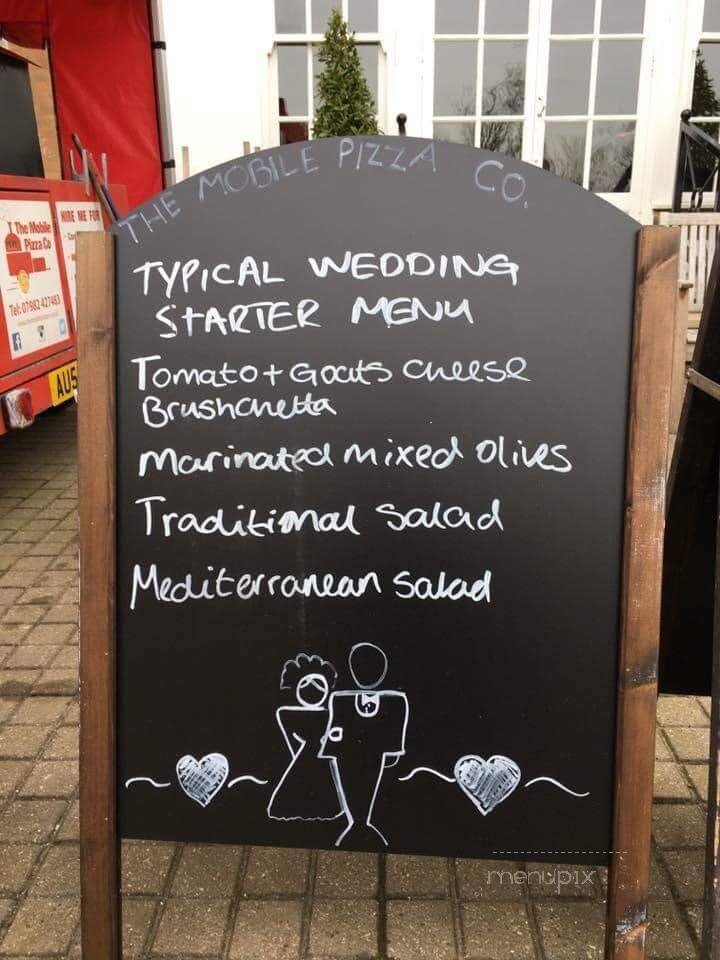 THE MOBILE PIZZA CO.
TYPICAL WEDDING
STARTER MENU
Tomato + Goats cheese
Brushchetta
Marinated mixed olives
Traditional salad
Mediterranean salad
The Mobile
Pizza Co
Tel: 07982 427493
HIRE ME FOR
AU5
menupix